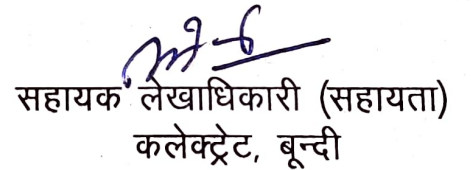 सहायक लेखाधिकारी (सहायता)
कलेक्ट्रेट, बून्दी